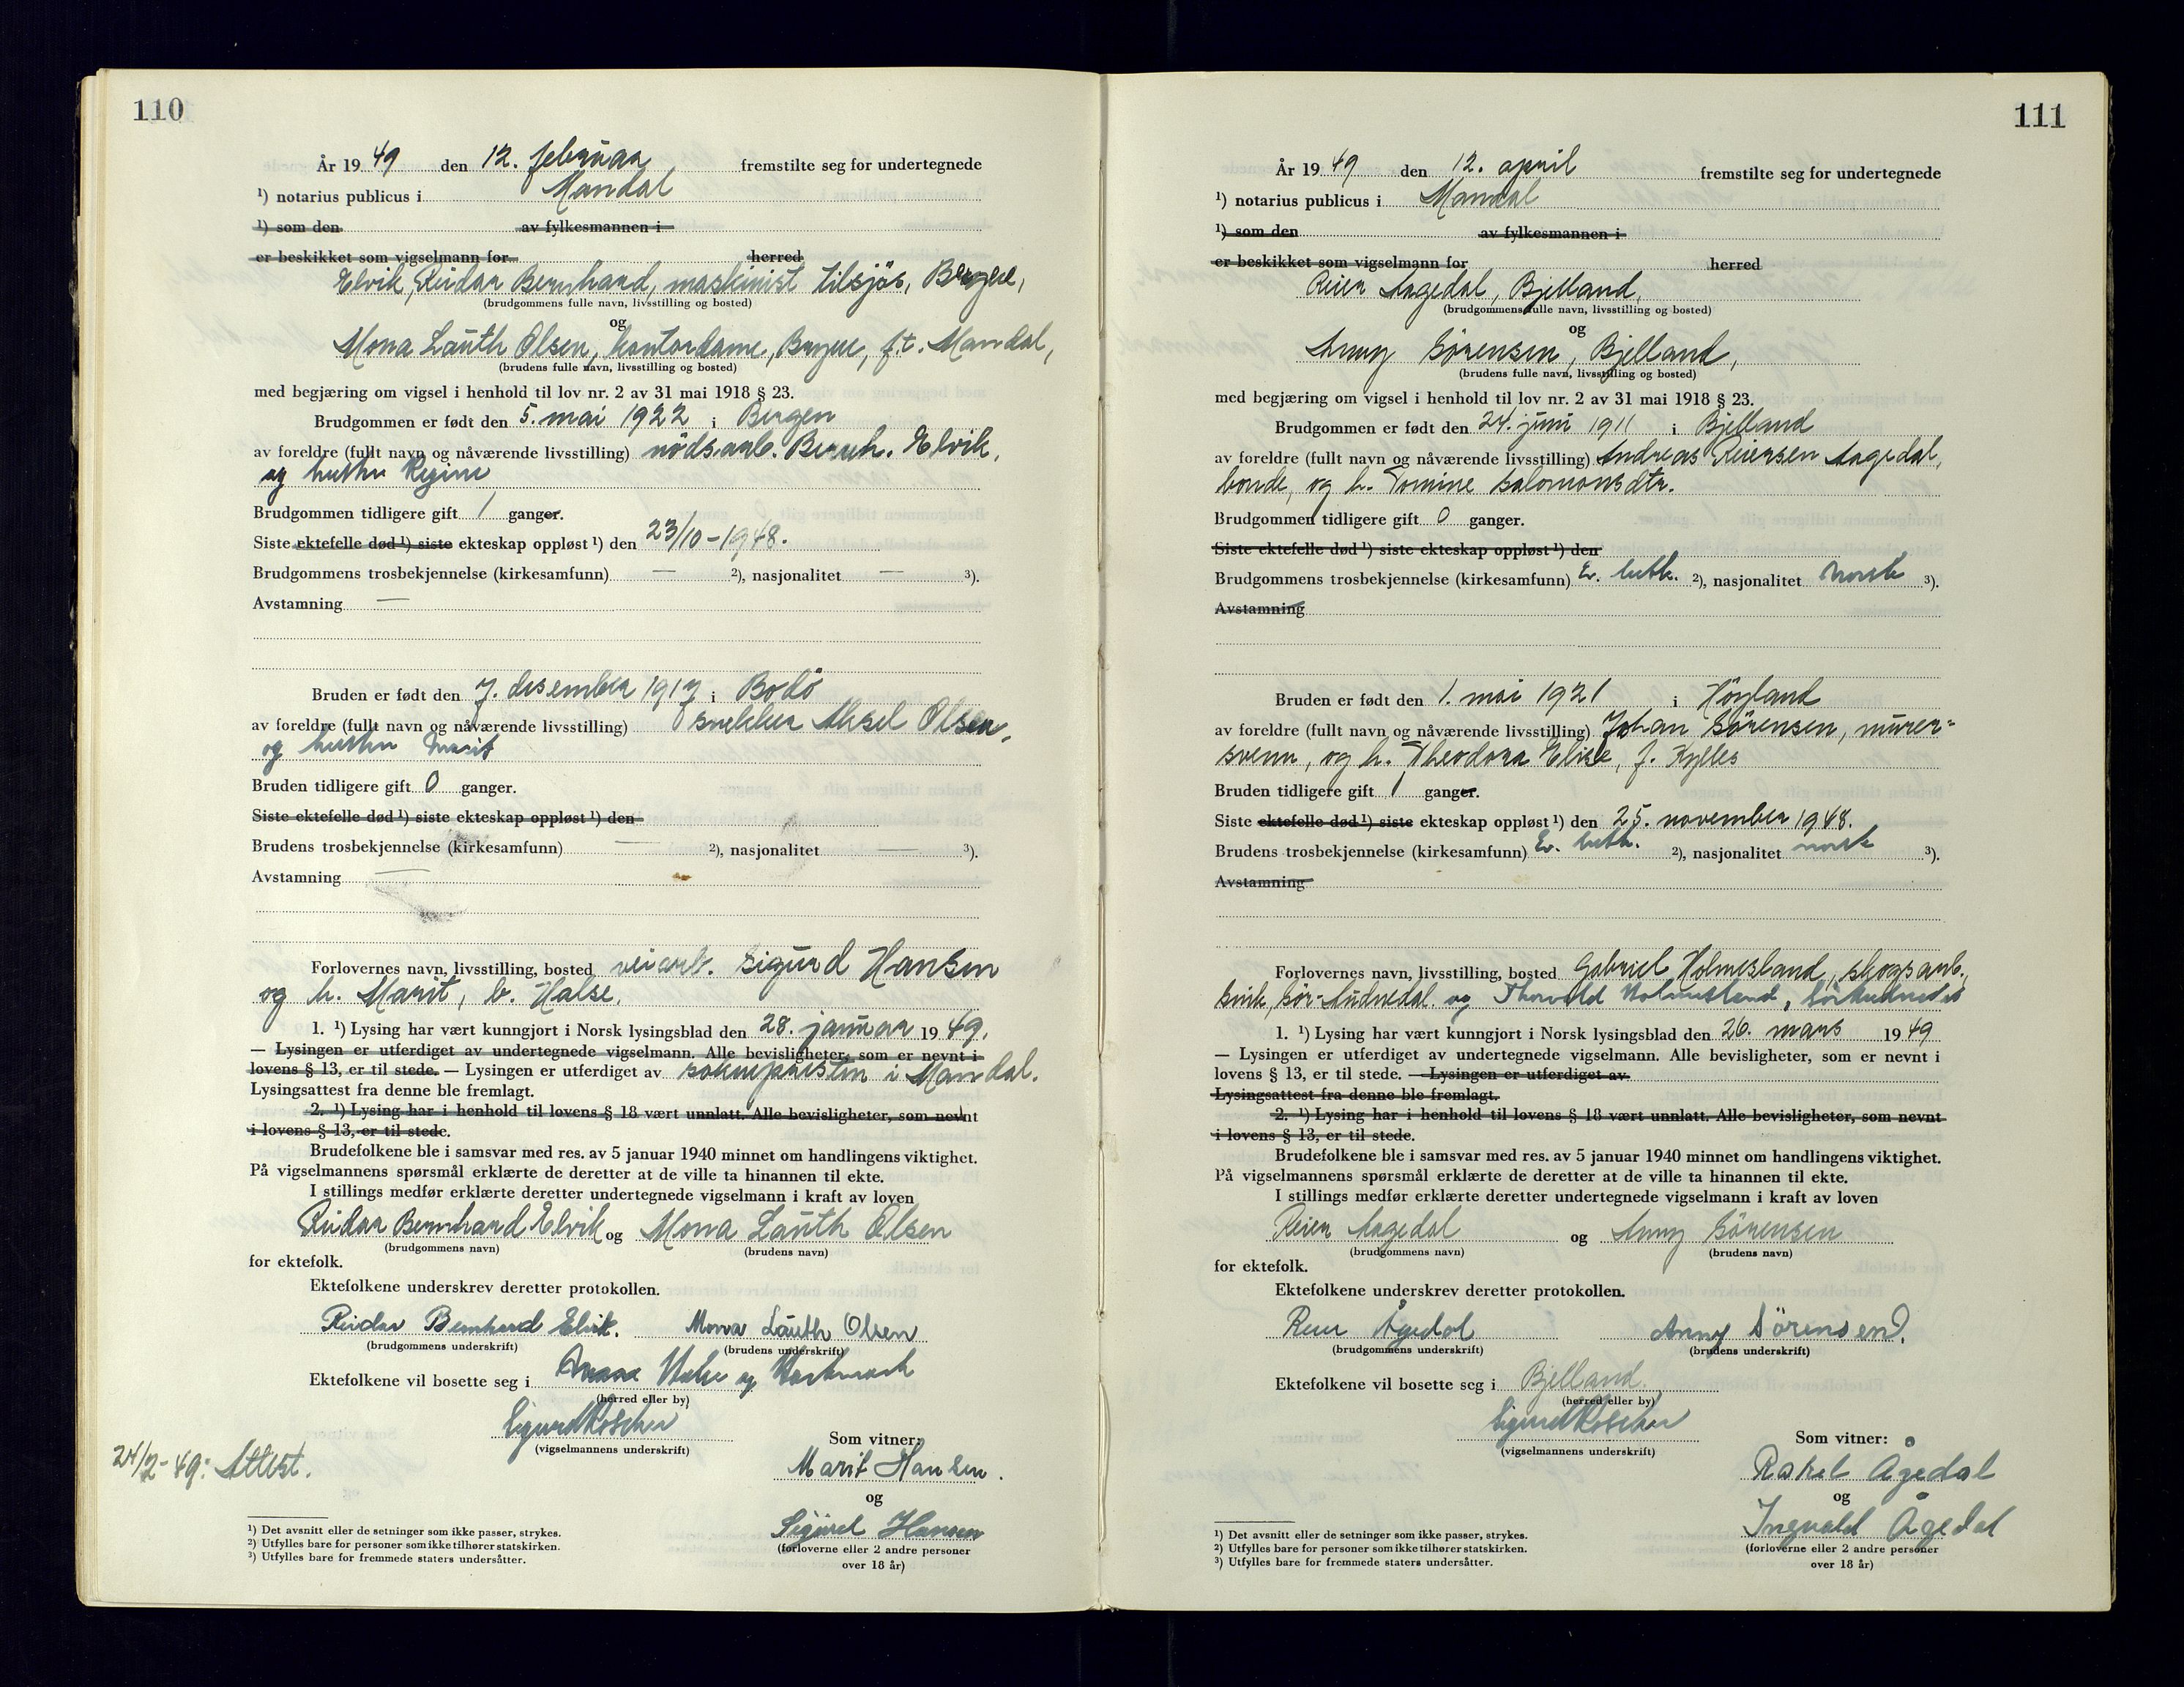 110
År 19 49 den 12. februar fremstilte seg for undertegnede
¹) notarius publicus i Mandal
¹) som den av fylkesmannen i
er beskikket som vigselmann for herred
Elvik, Reidar Bernhard, maskinist tilsjøs, Bergen,
(brudgommens fulle navn, livsstilling og bosted)
og
Mona Lauth Olsen, kontordame, Bergen, f.t. Mandal,
(brudens fulle navn, livsstilling og bosted)
med begjæring om vigsel i henhold til lov nr. 2 av 31 mai 1918 § 23.
Brudgommen er født den 5. mai 1922 i Bergen
av foreldre (fullt navn og nåværende livsstilling) nødsarb. Bernh. Elvik,
og hustru Regine
Brudgommen tidligere gift 1 ganger.
Siste ektefelle død ¹) siste ekteskap oppløst ¹) den 23/10-1948.
Brudgommens trosbekjennelse (kirkesamfunn) — ²), nasjonalitet — ³).
Avstamning —
Bruden er født den 7. desember 1917 i Bodö
av foreldre (fullt navn og nåværende livsstilling) snekker Aksel Olsen,
og hustru Marit
Bruden tidligere gift 0 ganger.
Siste ektefelle død ¹) siste ekteskap oppløst ¹) den
Brudens trosbekjennelse (kirkesamfunn) — ²), nasjonalitet — ³).
Avstamning —
Forlovernes navn, livsstilling, bosted veiarb. Sigurd Hansen
og h. Marit, b. Halse.
1. ¹) Lysing har vært kunngjort i Norsk lysingsblad den 28. januar 19 49.
— Lysingen er utferdiget av undertegnede vigselmann. Alle bevisligheter, som er nevnt i
lovens § 13, er til stede. — Lysingen er utferdiget av sokneprästen i Mandal.
Lysingsattest fra denne ble fremlagt.
2. ¹) Lysing har i henhold til lovens § 18 vært unnlatt. Alle bevisligheter, som nevnt
i lovens § 13, er til stede.
Brudefolkene ble i samsvar med res. av 5 januar 1940 minnet om handlingens viktighet.
På vigselmannens spørsmål erklærte de deretter at de ville ta hinannen til ekte.
I stillings medfør erklærte deretter undertegnede vigselmann i kraft av loven
Reidar Bernhard Elvik og Mona Lauth Olsen
(brudgommens navn) (brudens navn)
for ektefolk.
Ektefolkene underskrev deretter protokollen.
Reidar Bernhard Elvik. Mona Lauth Olsen
(brudgommens underskrift) (brudens underskrift)
Ektefolkene vil bosette seg i Halse og Harkmark
(herred eller by)
(vigselmannens underskrift)
24/2-49: Attest.
Som vitner:
Marit Hansen.
og
Sigurd Hansen
(forloverne eller 2 andre personer
over 18 år)
¹) Det avsnitt eller de setninger som ikke passer, strykes.
²) Utfylles bare for personer som ikke tilhører statskirken.
³) Utfylles bare for fremmede staters undersåtter.
111
År 19 49 den 12. april fremstilte seg for undertegnede
¹) notarius publicus i Mandal
¹) som den av fylkesmannen i
er beskikket som vigselmann for herred
Reier Aagedal, Bjelland,
(brudgommens fulle navn, livsstilling og bosted)
og
Anny Sörensen, Bjelland,
(brudens fulle navn, livsstilling og bosted)
med begjæring om vigsel i henhold til lov nr. 2 av 31 mai 1918 § 23.
Brudgommen er født den 24. juni 1911 i Bjelland
av foreldre (fullt navn og nåværende livsstilling) Andreas Reiersen Aagedal,
bonde, og h. Tomine Salomonsdtr.
Brudgommen tidligere gift 0 ganger.
Siste ektefelle død ¹) siste ekteskap oppløst ¹) den
Brudgommens trosbekjennelse (kirkesamfunn) Ev. luth. ²), nasjonalitet norsk ³).
Avstamning
Bruden er født den 1. mai 1921 i Höyland
av foreldre (fullt navn og nåværende livsstilling) Johan Sörensen, murer-
svenn, og h. Theodora Elise, f. Kylles
Bruden tidligere gift 1 ganger.
Siste ektefelle død ¹) siste ekteskap oppløst ¹) den 25. november 1948.
Brudens trosbekjennelse (kirkesamfunn) Ev. luth. ²), nasjonalitet norsk ³).
Avstamning
Forlovernes navn, livsstilling, bosted Gabriel Holmesland, skogsarb.,
Sör-Audnedal og Thorvald Holmesland,
1. ¹) Lysing har vært kunngjort i Norsk lysingsblad den 26. mars 19 49
— Lysingen er utferdiget av undertegnede vigselmann. Alle bevisligheter, som er nevnt i
lovens § 13, er til stede. — Lysingen er utferdiget av
Lysingsattest fra denne ble fremlagt.
2. ¹) Lysing har i henhold til lovens § 18 vært unnlatt. Alle bevisligheter, som nevnt
i lovens § 13, er til stede.
Brudefolkene ble i samsvar med res. av 5 januar 1940 minnet om handlingens viktighet.
På vigselmannens spørsmål erklærte de deretter at de ville ta hinannen til ekte.
I stillings medfør erklærte deretter undertegnede vigselmann i kraft av loven
Reier Aagedal og Anny Sörensen
(brudgommens navn) (brudens navn)
for ektefolk.
Ektefolkene underskrev deretter protokollen.
Reier Ågedal Anny Sörensen.
(brudgommens underskrift) (brudens underskrift)
Ektefolkene vil bosette seg i Bjelland.
(herred eller by)
(vigselmannens underskrift)
Som vitner:
Rakel Ågedal
og
Ingvald Ågedal
(forloverne eller 2 andre personer
over 18 år)
¹) Det avsnitt eller de setninger som ikke passer, strykes.
²) Utfylles bare for personer som ikke tilhører statskirken.
³) Utfylles bare for fremmede staters undersåtter.